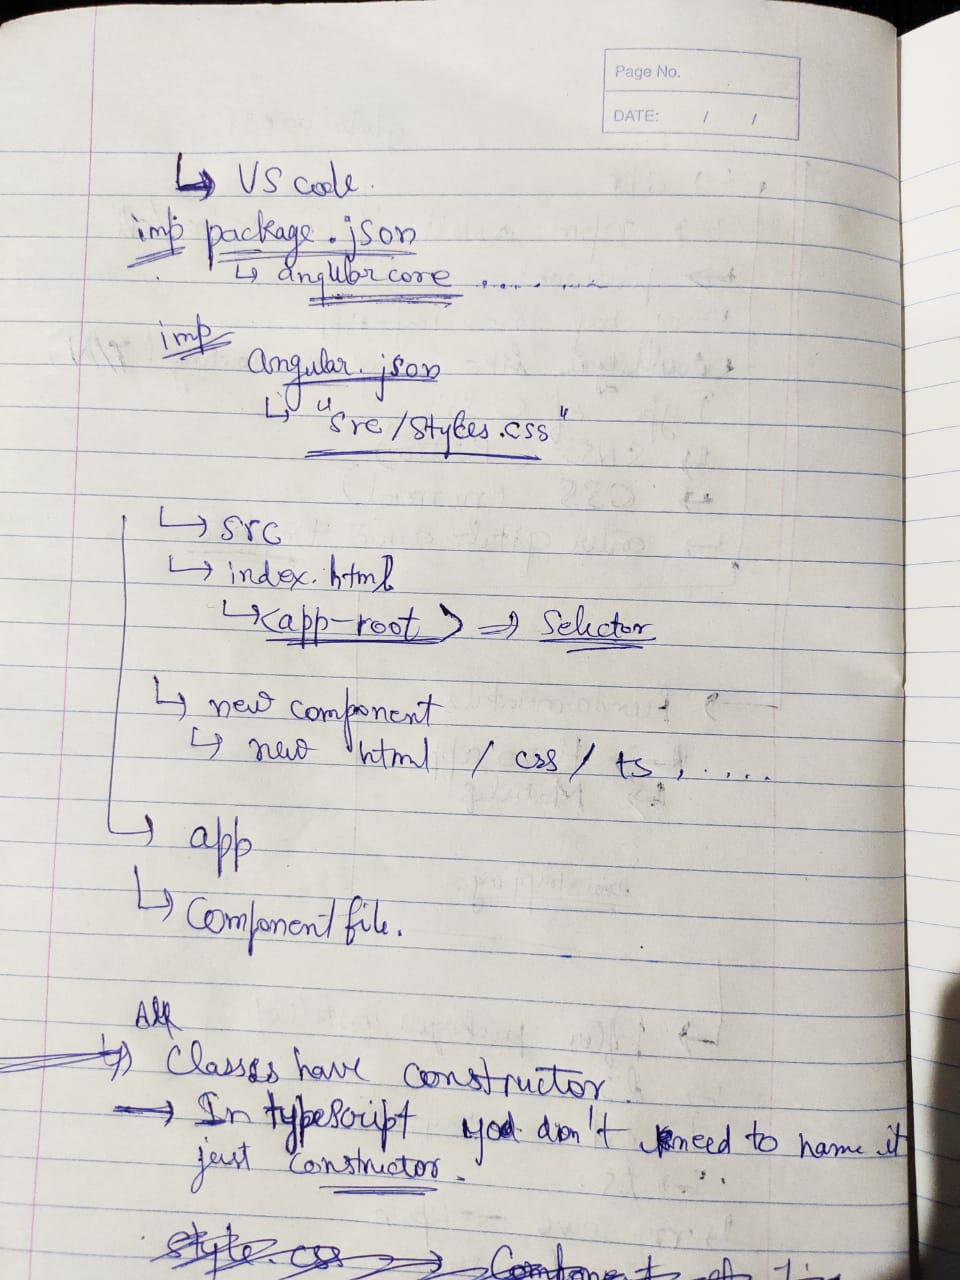 Page No.
DATE: / /
↳ VS code.
imp package.json
↳ angular core ........
imp
angular.json
↳ "src/styles.css"
↳ src
↳ index.html
↳ <app-root> ⇒ Selector
↳ new component
↳ new html / css / ts, ....
↳ app
↳ Component file.
All
↳ Classes have constructor.
→ In typescript you don't need to name it
just constructor.
style.css → Component